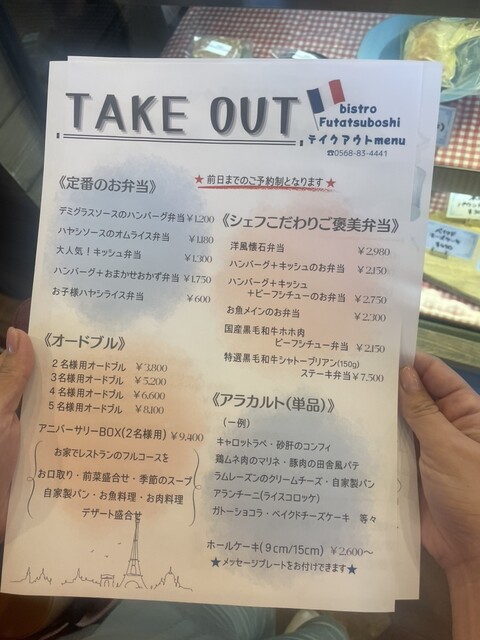 TAKE OUT
bistro
Futatsuboshi
テイクアウトmenu
☎0568-83-4441
★前日までのご予約制となります★
《定番のお弁当》
デミグラスソースのハンバーグ弁当 ¥1,200
ハヤシソースのオムライス弁当 ¥1,180
大人気！キッシュ弁当 ¥1,300
ハンバーグ＋おまかせおかず弁当 ¥1,750
お子様ハヤシライス弁当 ¥600
《オードブル》
2名様用オードブル ¥3,800
3名様用オードブル ¥5,200
4名様用オードブル ¥6,600
5名様用オードブル ¥8,100
アニバーサリーBOX(2名様用) ¥9,400
お家でレストランのフルコースを
お口取り・前菜盛合せ・季節のスープ
自家製パン・お魚料理・お肉料理
デザート盛合せ
《シェフこだわりご褒美弁当》
洋風懐石弁当 ¥2,980
ハンバーグ＋キッシュのお弁当 ¥2,150
ハンバーグ＋キッシュ
＋ビーフシチューのお弁当 ¥2,750
お魚メインのお弁当 ¥2,300
国産黒毛和牛ホホ肉
ビーフシチュー弁当 ¥2,150
特選黒毛和牛シャトーブリアン(150g)
ステーキ弁当 ¥7,500
《アラカルト(単品)》
(一例)
キャロットラペ・砂肝のコンフィ
鶏ムネ肉のマリネ・豚肉の田舎風パテ
ラムレーズンのクリームチーズ・自家製パン
アランチーニ(ライスコロッケ)
ガトーショコラ・ベイクドチーズケーキ 等々
ホールケーキ(9cm/15cm) ¥2,600～
★メッセージプレートをお付けできます★